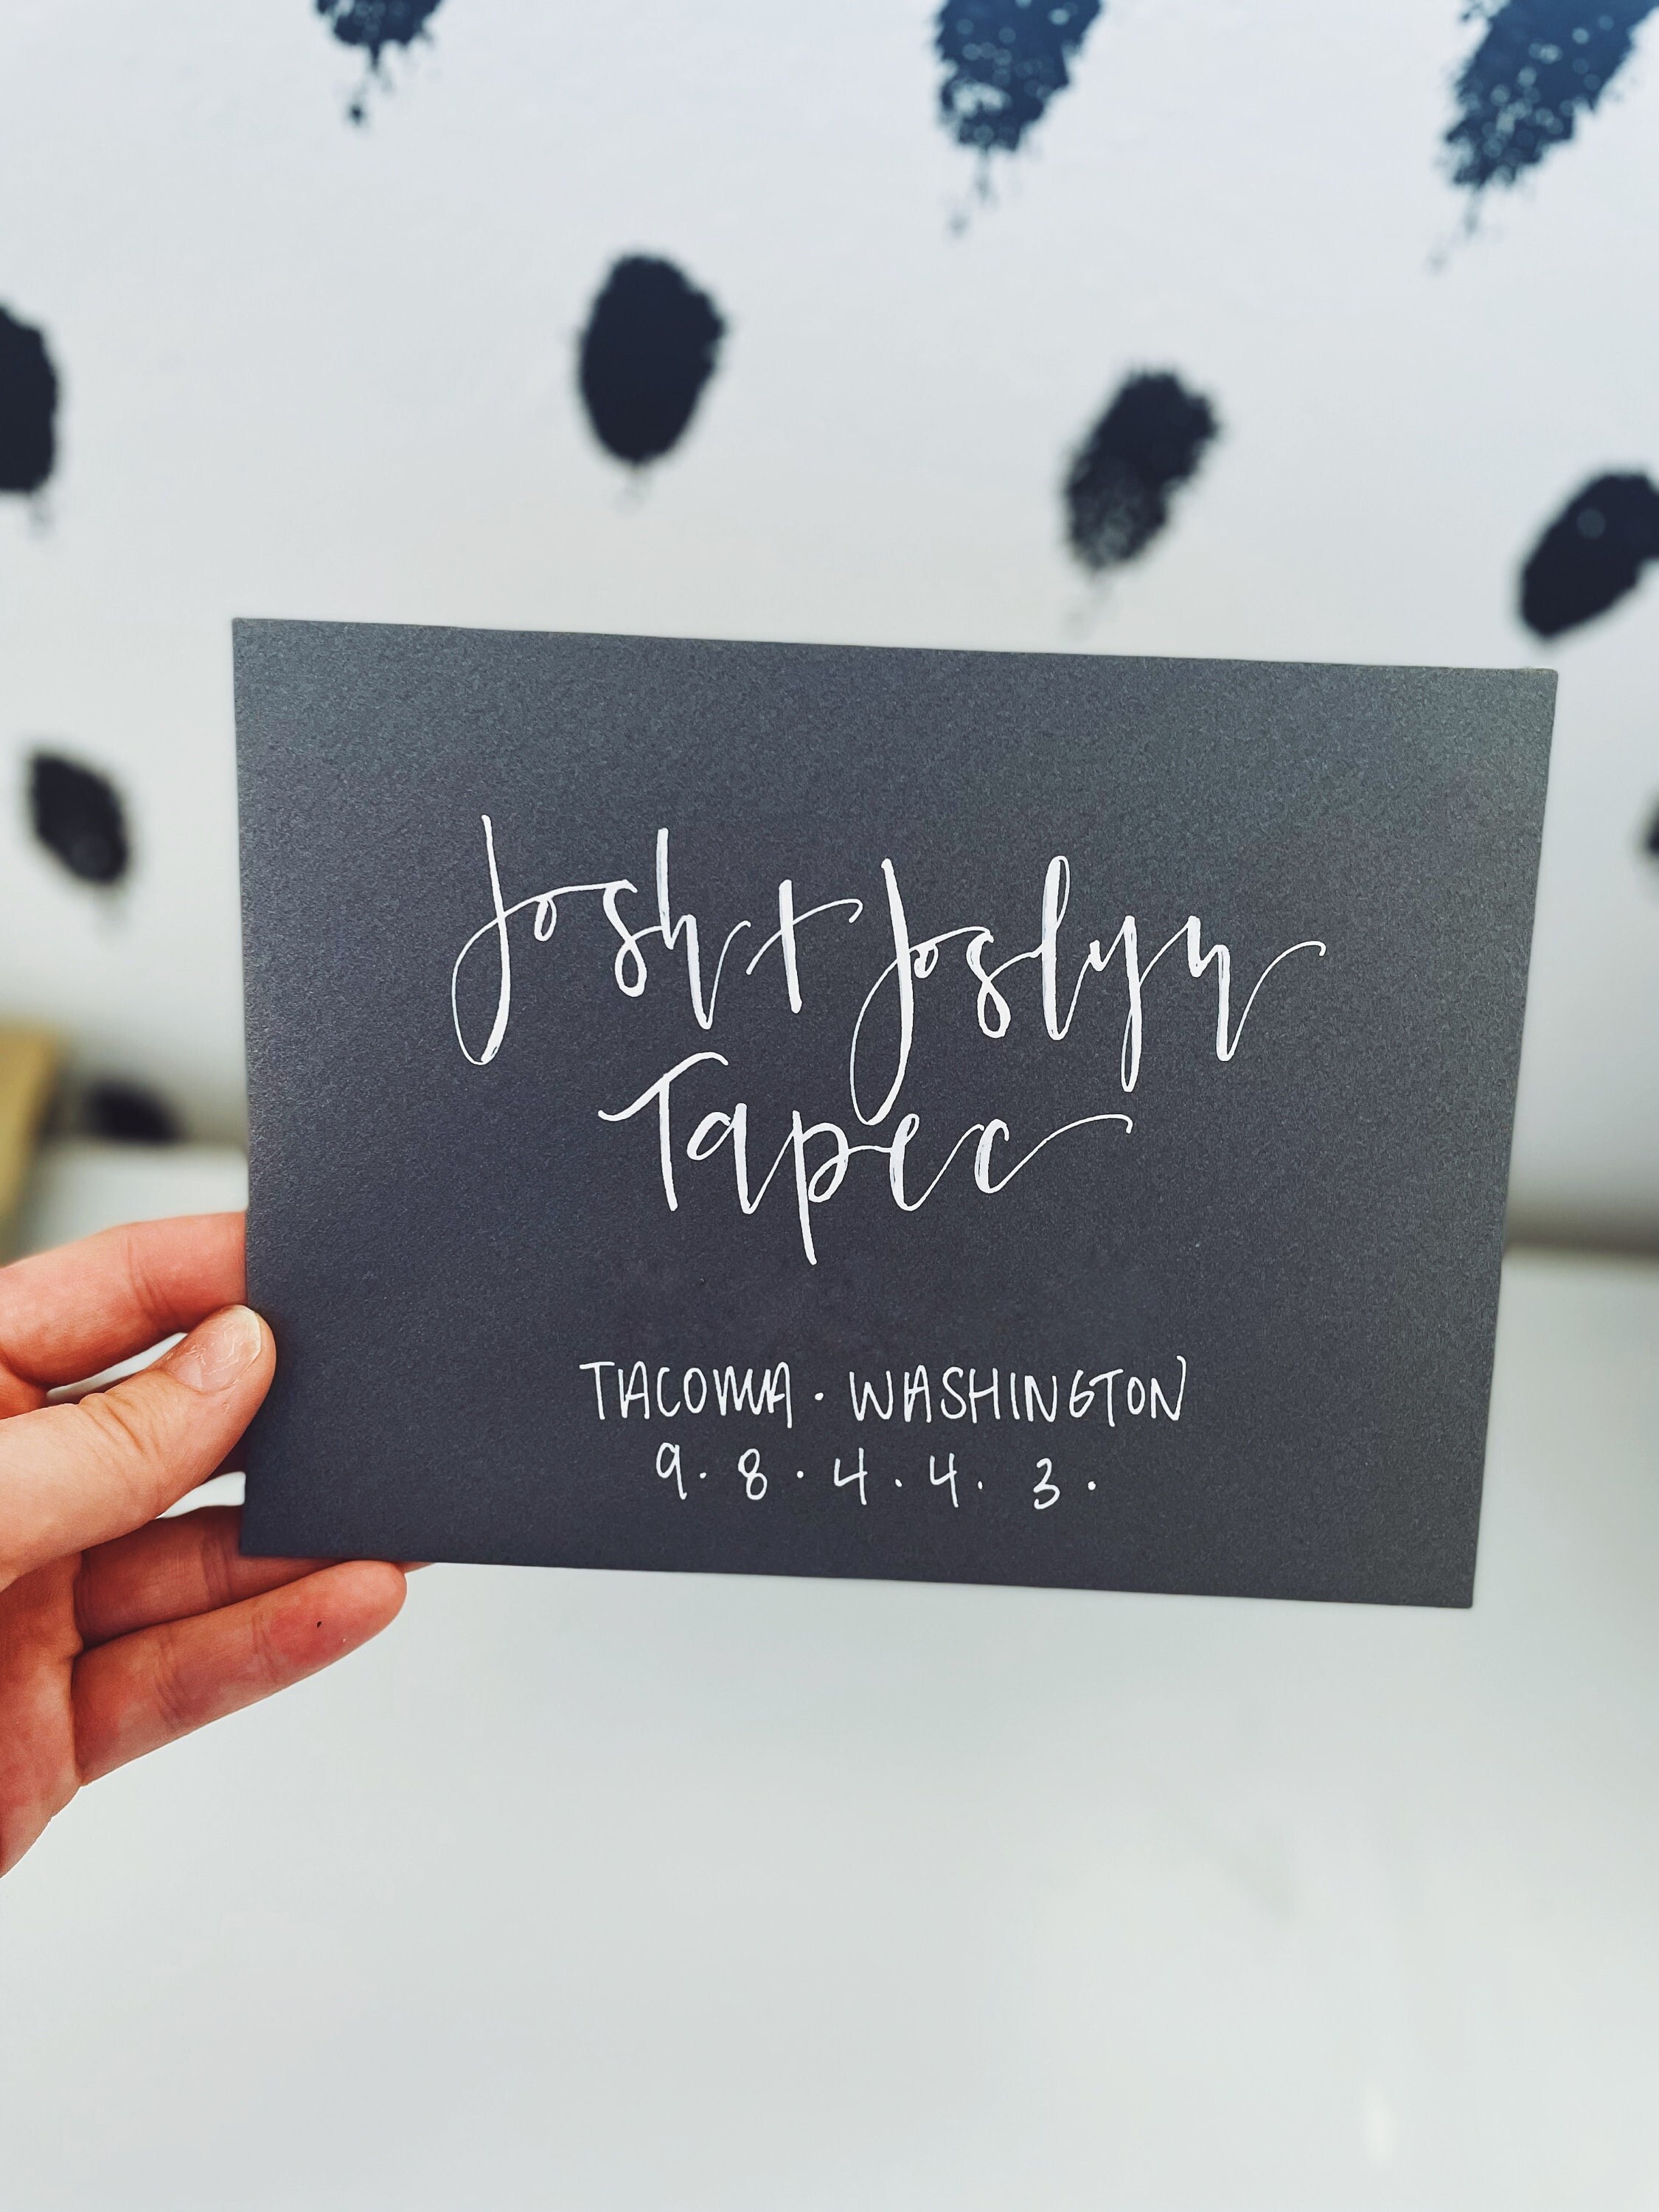 Josh + Joslyn
Tapec
TACOMA · WASHINGTON
9 · 8 · 4 · 4 · 3 ·